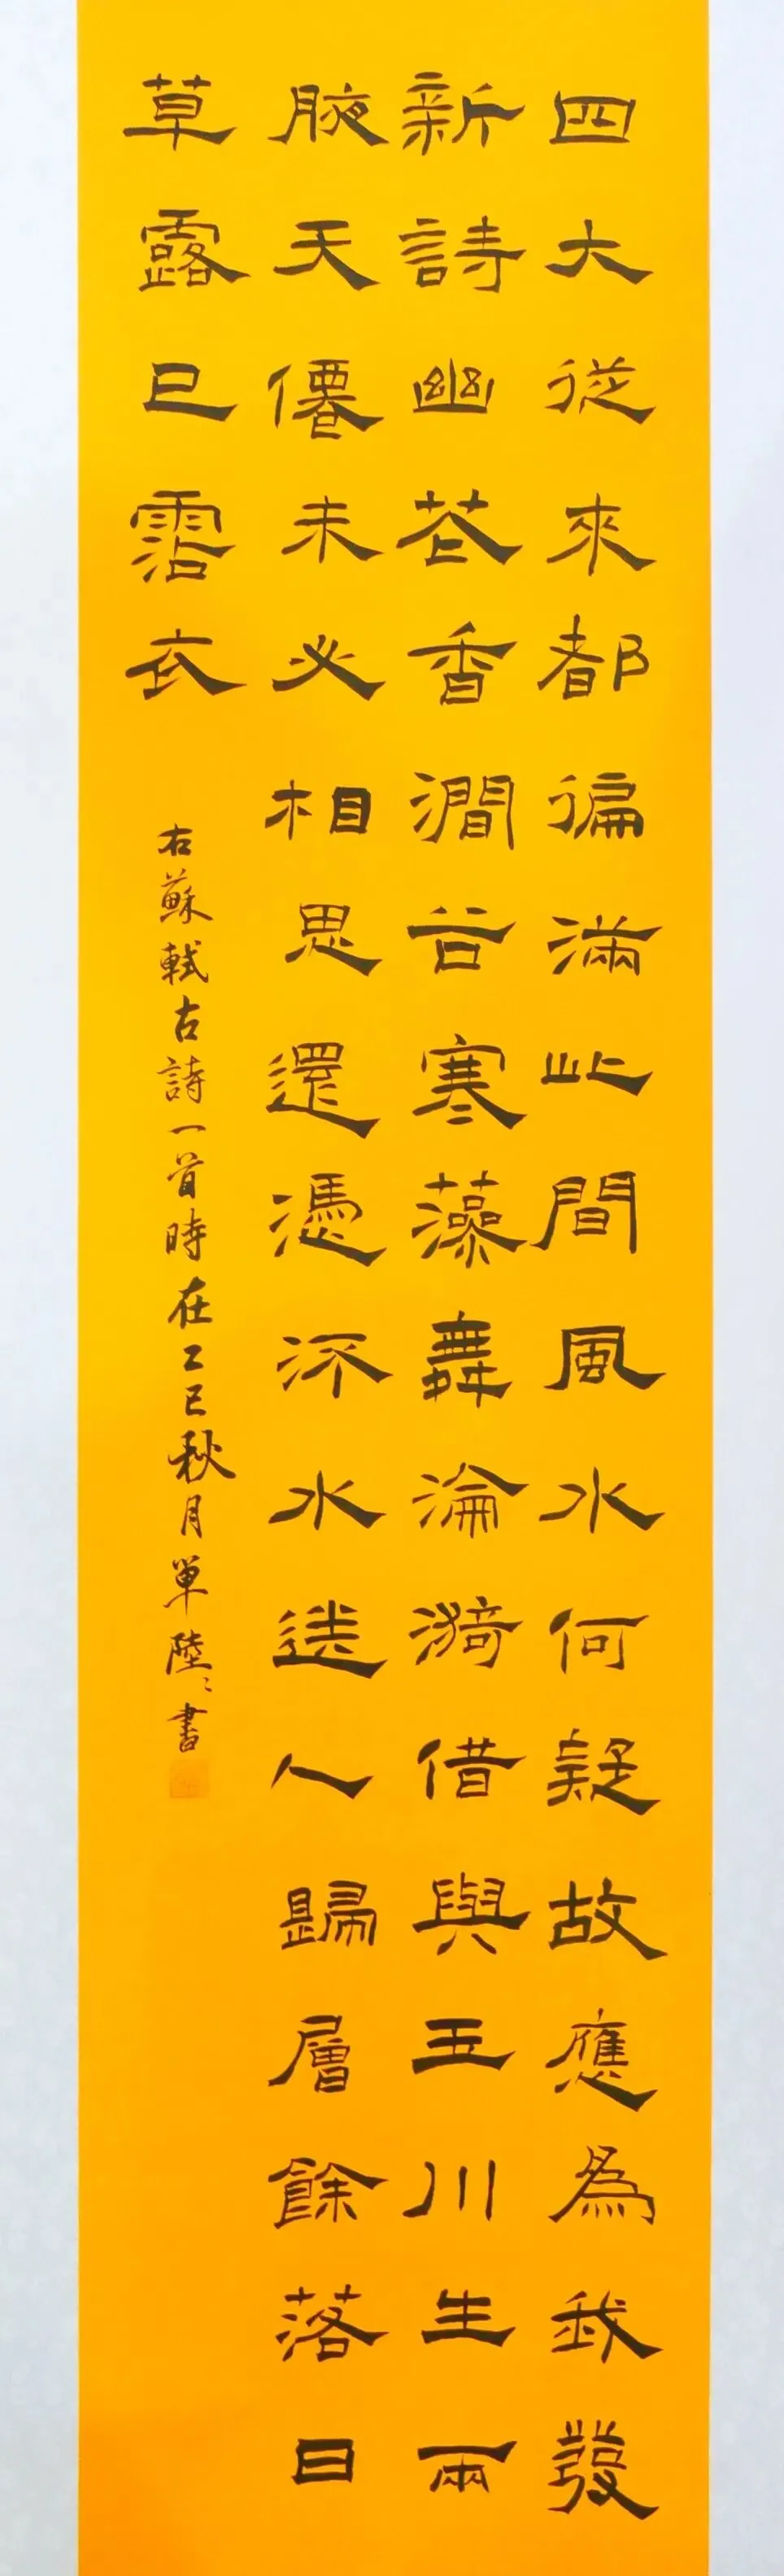 四大從來都徧滿此間風水何疑故應為我發
新詩幽花香澗谷寒藻舞淪漪借與玉川生兩
腋天僊未必相思還憑流水送人歸層餘落日
草露已霑衣
右蘇軾古詩一首時在乙巳秋月單陸〻書